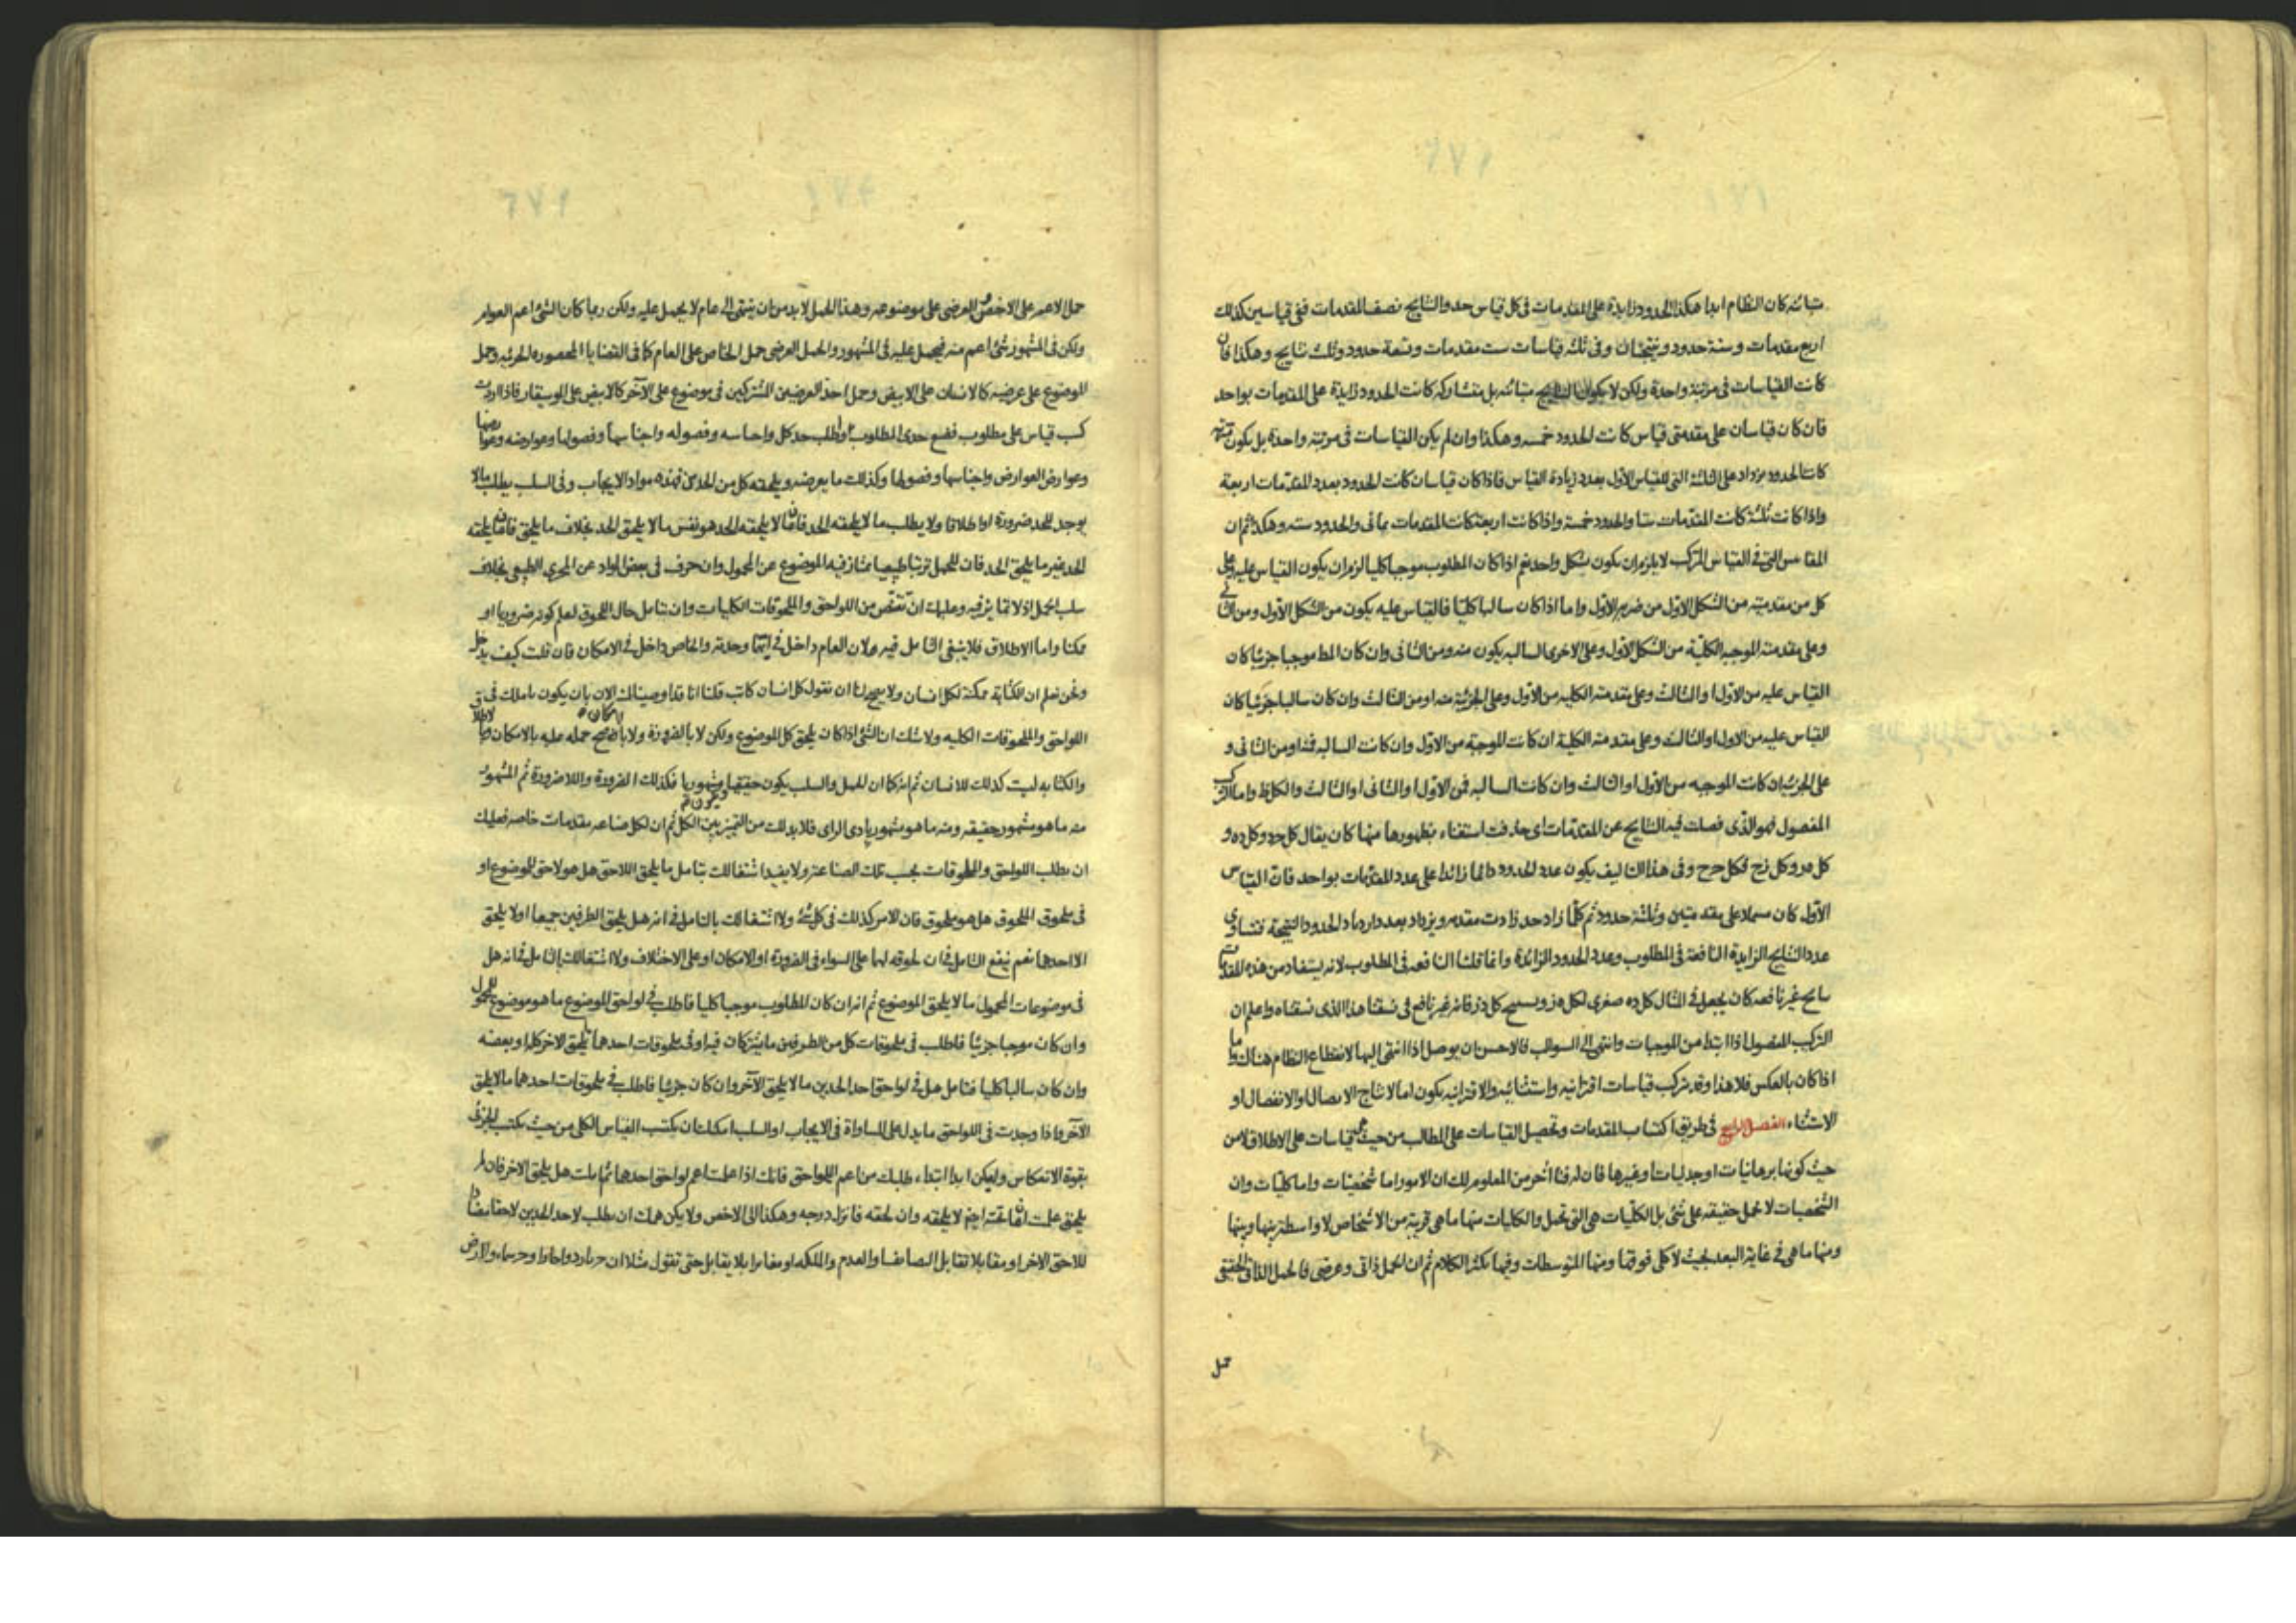 متبائنه كان النظام ابدا هكذا الحدود زايدة على المقدمات فى كل قياس حد والنتايج نصف المقدمات ففى قياسين كذلك
اربع مقدمات وستة حدود ونتيجتان وفى ثلثه قياسات ست مقدمات وتسعة حدود وثلث نتايج وهكذا فان
كانت القياسات فى مرتبة واحدة ولكن لا يكون النتايج متبائنه بل متشاركه كانت الحدود زايدة على المقدمات بواحد
فان كان قياسان على مقدمتى قياس كانت الحدود خمسه وهكذا وان لم يكن القياسات فى مرتبة واحدة بل يكون
كانت الحدود يزداد على الثلثة التى للقياس الاول بعدد زيادة القياس فاذا كان قياسان كانت الحدود بعدد المقدمات اربعة
واذا كانت ثلثة كانت المقدمات ستا والحدود خمسة واذا كانت اربعة كانت المقدمات ثمانى والحدود سته وهكذا ثم ان
المقاييس التى فى القياس المركب لا يلزم ان يكون بشكل واحد نعم اذا كان المطلوب موجبا كليا لزم ان يكون القياس عليه وعلى
كل من مقدمتيه من الشكل الاول من ضربه الاول واما اذا كان سالبا كليا فالقياس عليه يكون من الشكل الاول ومن الثانى
وعلى مقدمته الموجبه الكلية من الشكل الاول وعلى الاخرى السالبه يكون منه ومن الثانى وان كان المط موجبا جزئيا كان
القياس عليه من الاول او الثالث وعلى مقدمته الكليه من الاول وعلى الجزئية منه او من الثالث وان كان سالبا جزئيا كان
القياس عليه من الاول او الثالث وعلى مقدمته الكلية ان كانت الموجبة من الاول وان كانت السالبه فمنه او من الثانى و
على الجزئية ان كانت الموجبه من الاول او الثالث وان كانت السالبه فمن الاول او الثانى او الثالث والكل ظ واما المركب
المفصول فهو الذى فصلت فيه النتايج عن المقدمات اى حذفت استغناء بظهورها منها كان يقال كل جد وكل ده و
كل هر وكل زح فكل جح وفى هذا التاليف يكون عدد الحدود دائما زائدا على عدد المقدمات بواحد فان القياس
الاول كان مشتملا على مقدمتين وثلثة حدود ثم كلما زاد حد زادت مقدمه ويزداد بعدد ازدياد الحدود النتيجة فتساوى
عدد النتايج الزايدة النافعة فى المطلوب وعدد الحدود الزائدة وانما قلنا النافعه فى المطلوب لانه يستفاد من هذه المقدمات
نتايج غير نافعه كان يجعل فى المثال كل ده صغرى لكل هز وينتج كل دز فانه غير نافع فى نسقنا هذا الذى نسقناه واعلم ان
التركيب المفصول اذا ابتدا من الموجبات وانتهى الى السوالب فالاحسن ان يوصل اذا انتهى اليها لانقطاع النظام هناك واما
اذا كان بالعكس فلا هذا وقد يتركب قياسات اقترانيه واستثنائيه والاقترانيه يكون اما لانتاج الاتصال او الانفصال او
الاستثناء الفصل الرابع فى طريق اكتساب المقدمات وتحصيل القياسات على المطالب من حيث هى قياسات على الاطلاق لا من
حيث كونها برهانيات او جدليات او غيرها فان له فنا اخر من المعلوم لك ان الامور اما شخصيات واما كليات وان
الشخصيات لا تحمل حقيقه على شئ بل الكليات هى التى تحمل والكليات منها ما هى قريبة من الاشخاص لا واسطة بينها وبينها
ومنها ما هى فى غاية البعد بحيث لا كلى فوقها ومنها المتوسطات وفيها يكثر الكلام ثم ان الحمل ذاتى وعرضى فالحمل الذاتى الحقيقى
حمل
حمل الاعم على الاخص والعرضى على موضوعه وهذا الحمل لا بد من ان ينتهى الى عام لا يحمل عليه ولكن ربما كان الشئ اعم العوام
ولكن فى المشهور شئ اعم منه فيحمل عليه فى المشهور والحمل العرضى حمل الخاص على العام كما فى القضايا المحصوره الجزئيه وحمل
الموضوع على عرضيه كالانسان على الابيض وحمل احد العرضين المشتركين فى موضوع على الآخر كالابيض على الموسيقار فاذا اردت
كسب قياس على مطلوب فضع حدى المطلوب اولا واطلب حد كل واجناسه وفصوله واجناسها وفصولها وعوارضه وعوارضها
وعوارض العوارض واجناسها وفصولها وكذلك ما يعرضه ويلحقه كل من الحدين فهذه مواد الايجاب وفى السلب يطلب ما لا
يوجد للحد ضرورة او اطلاقا ولا يطلب ما لا يلحقه الحد فان ما لا يلحقه الحد هو نفس ما لا يلحق الحد بخلاف ما يلحق فان ما يلحقه
الحد غير ما يلحق الحد فان للحمل ترتيبا طبيعيا يمتاز فيه الموضوع عن المحمول وان حرف فى بعض المواد عن المجرى الطبيعى بخلاف
سلب الحمل اذ لا تمايز فيه وعليك ان تتفحص من اللواحق والملحوقات الكليات وان تتامل حال اللحوق لتعلم كونه ضروريا او
ممكنا واما الاطلاق فلا ينبغى التامل فيه لان العام داخل فى ايتهما وحدته والخاص داخل فى الامكان فان قلت كيف يدخل
ونحن نعلم ان الكتابة ممكنة لكل انسان ولا يصح لنا ان نقول كل انسان كاتب قلنا انا قد اوصيناك الان بان يكون تاملك فى
اللواحق والملحوقات الكليه ولا شك ان الشئ اذا كان يلحق كل الموضوع ولكن لا بالضرورة ولا بالاطلاق صح حمله عليه بالامكان
والكتابه ليت كذلك للانسان ثم انه كما ان الحمل والسلب يكون حقيقيا ومشهوريا فكذلك الضرورة واللاضرورة ثم المشهور
منه ما هو مشهور حقيقه ومنه ما هو مشهور ببادى الراى فلا بد لك من التمييز بين الكل ثم ان لكل صناعه مقدمات خاصه فعليك
ان تطلب اللواحق والملحوقات بحسب تلك الصناعة ولا يفيد اشتغالك بتامل ما يلحق اللاحق هل هو لاحق للموضوع او
فى ملحوق الملحوق هل هو ملحوق فان الامر كذلك فى كل شئ ولا اشتغالك بالتامل فى انه هل يلحق الطرفين جميعا اولا يلحق
الا احدهما نعم ينفع التامل فى ان لحوقه لهما على السواء فى الضرورة او الامكان او على الاختلاف ولا اشتغالك بالتامل فى انه هل
فى موضوعات المحمول ما لا يلحق الموضوع ثم انه ان كان المطلوب موجبا كليا فاطلب فى لواحق الموضوع ما هو موضوع للمحمول
وان كان موجبا جزئيا فاطلب فى ملحوقات كل من الطرفين ما يشتركان فيه او فى ملحوقات احدهما ما يلحق الاخر كله او بعضه
وان كان سالبا كليا فتامل هل فى لواحق احد الحدين ما لا يلحق الآخر وان كان جزئيا فاطلب فى ملحوقات احدهما ما لا يلحق
الآخر واذا وجدت فى اللواحق ما يدل على المساواة فى الايجاب او السلب امكنك ان يكتسب القياس الكلى من حيث يكتسب الجزئى
بقوة الانعكاس وليكن ابدا ابتداء طلبك من اعم اللواحق فانك اذا علمت اعم لواحق احدهما ثم تاملت هل يلحق الاخر فان لم
يلحق علمت ان ما تحته ايضا لا يلحقه وان لحقه فانزل درجه وهكذا الى الاخص ولا يكن همك ان يطلب لاحد الحدين لاحقا مضادا
للاحق الاخر او مقابلا تقابل التضايف او العدم والملكه او مغايرا بلا تقابل حتى تقول مثلا ان